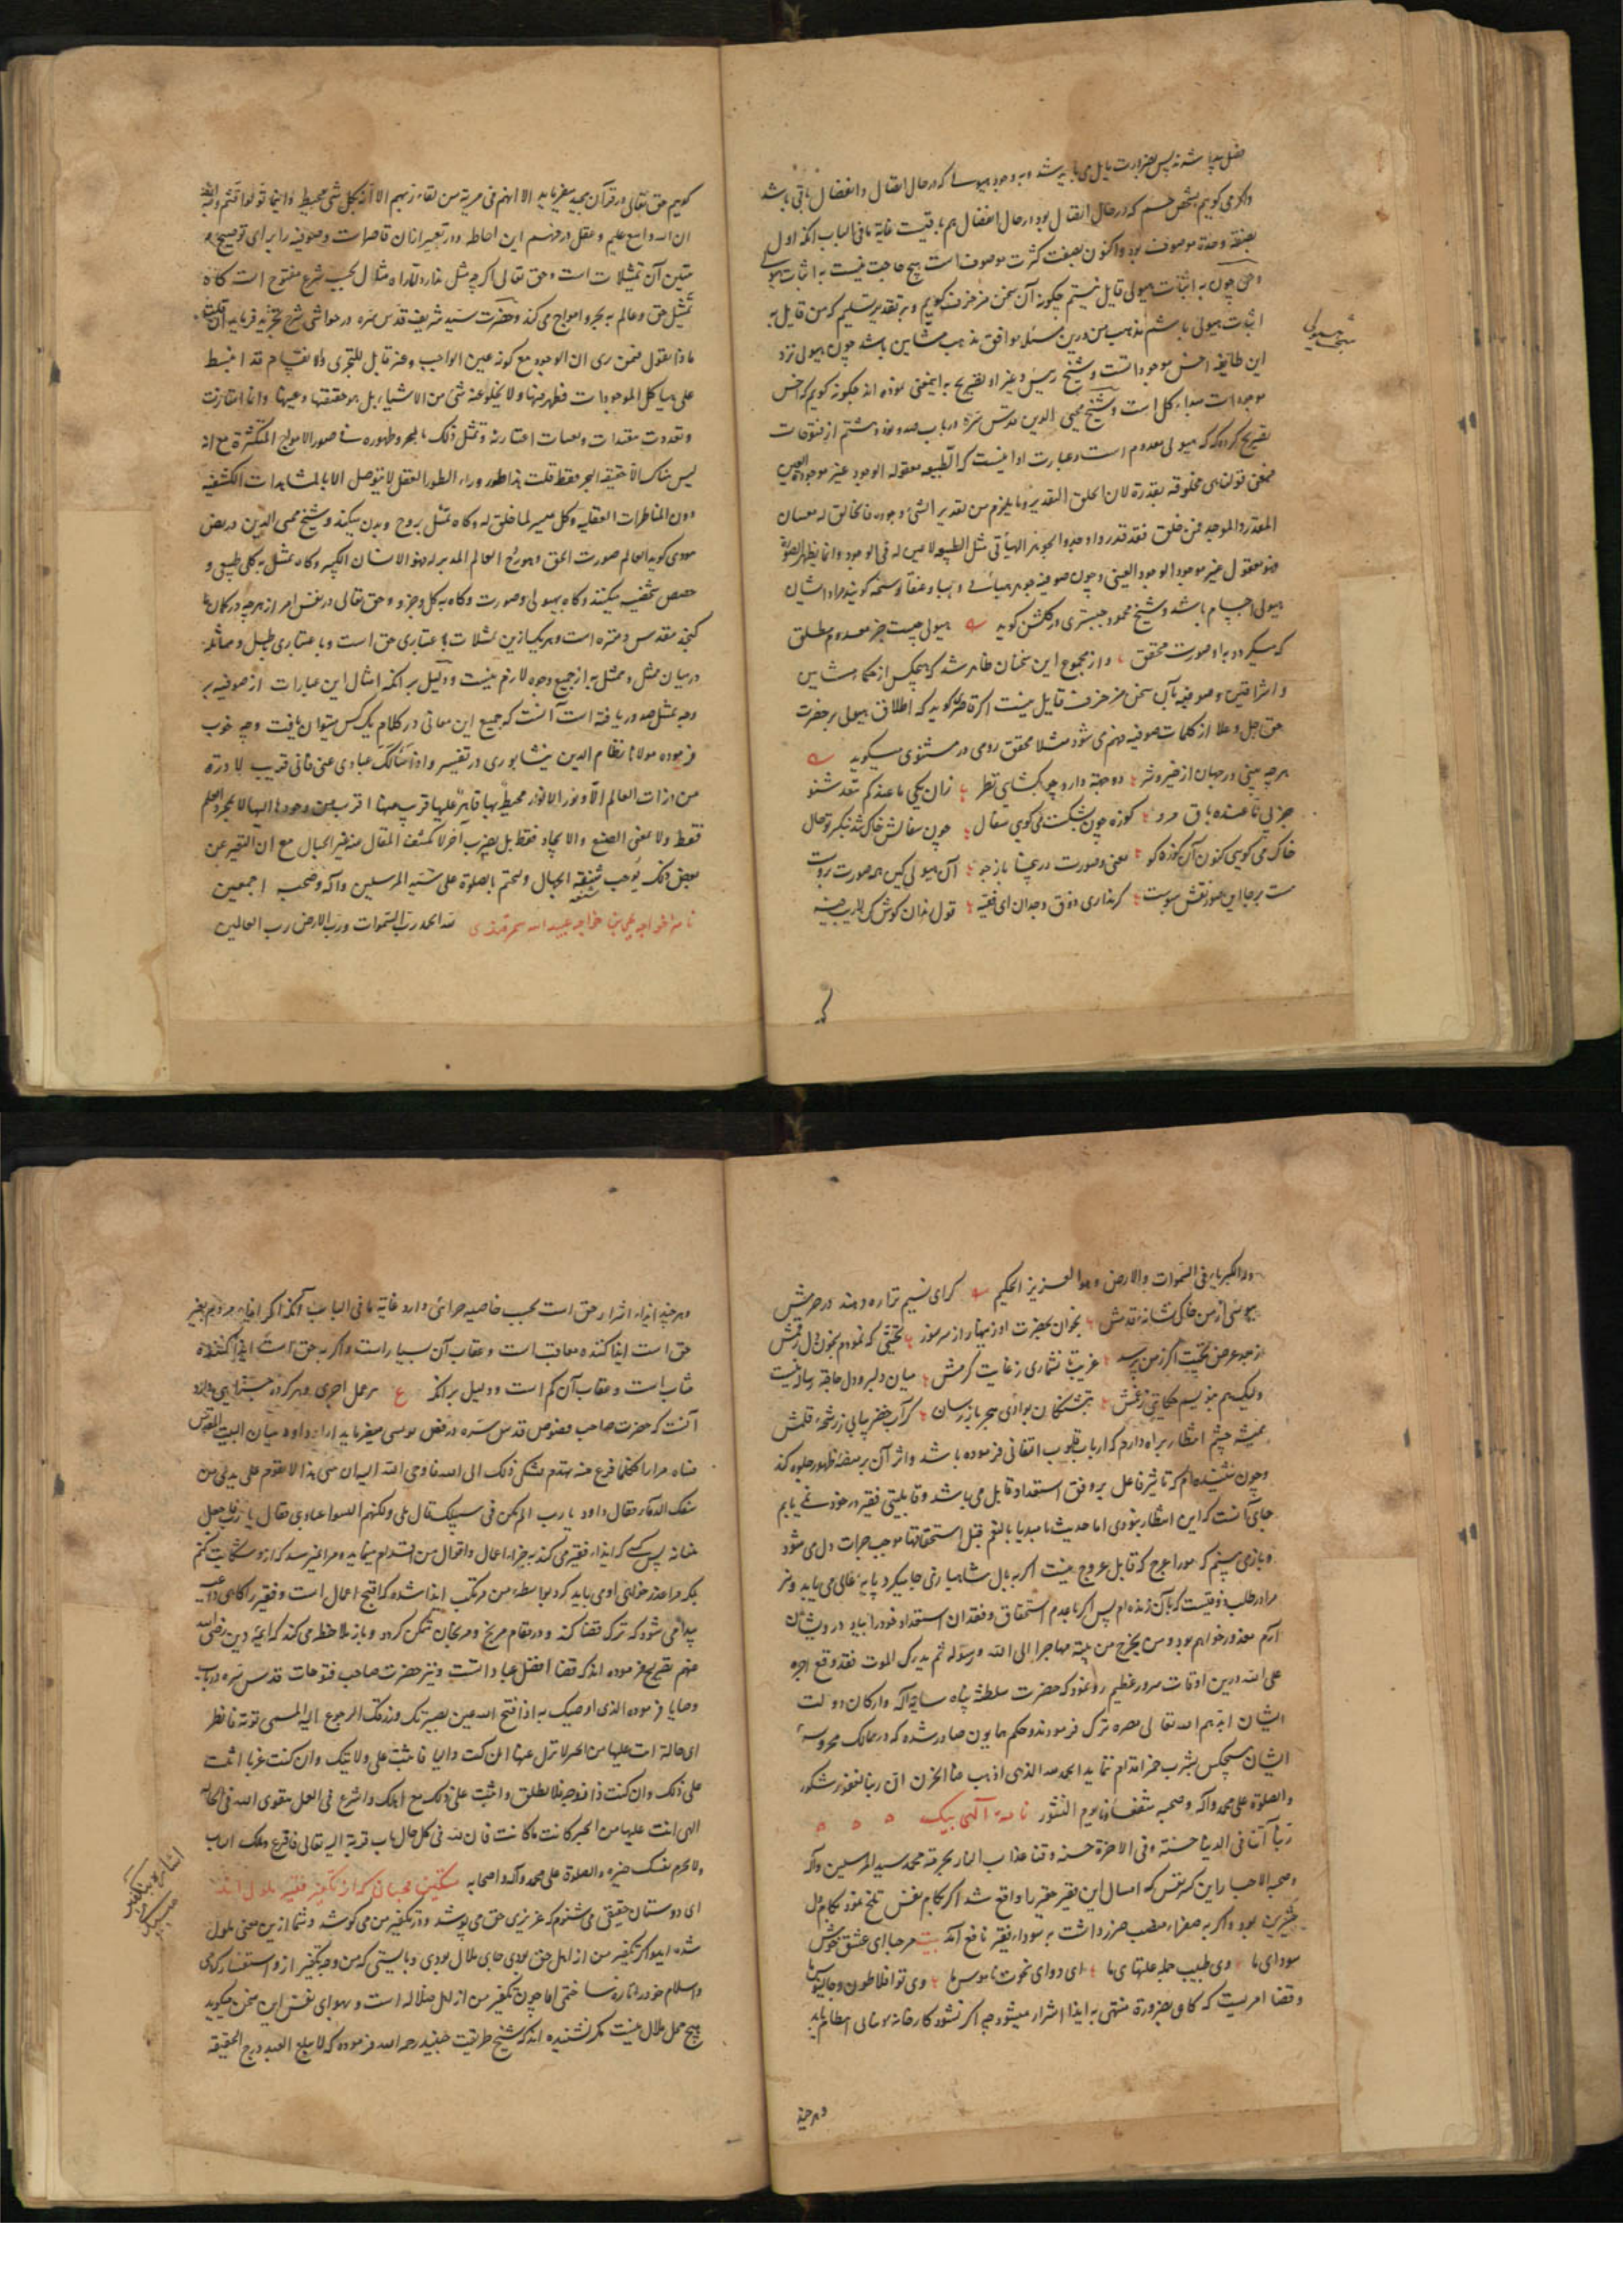 مفصل پیدا شده پس بضرورت قایل می باید شد بوجود هیولی که در حال اتصال و انفصال باقی باشد
واکر می کوییم شخص جسم که در حال اتصال بود در حال انفصال هم باقیست غایة ما فی الباب انکه اول
بصفة وحدة موصوف بود واکنون بصفت کثرت موصوف است هیچ حاجت نیست به اثبات هیولی
ومن چون به اثبات هیولی قایل نیستم چکونه آن سخن مزخرف کویم و بر تقدیر تسلیم که من قایل به
اثبات هیولی باشم مذهب من درین مسئله موافق مذهب مشایین باشد چون هیولی نزد
این طایفه اخس موجوداتست وشیخ رییس وغیر او تصریح به اینمعنی نموده اند چکونه کویم که اخس
موجودات مبداء کل است وشیخ محیی الدین قدس سره در باب صد و نود و هشتم از فتوحات
تصریح کرده که هیولی معدوم است وعبارت او اینست که الطبیعه معقوله الوجود غیر موجودة العین
فمعنی قولنا هی مخلوقه مقدرة لان الخلق التقدیر وما یلزم من تقدیر الشیٔ وجوده فالخالق له معنیان
المقدر والموجد فمن خلق فقد قدر واوجد والجوهر الهبائی مثل الطبیعه لا عین له فی الوجود وانما تظهره الصورة
فهو معقول غیر موجود الوجود العینی وچون صوفیه جوهر هبائی و هباء وعنقا وسبحه کویند مراد ایشان
هیولی اجسام باشد وشیخ محمود جبستری در کلشن کوید هیولی چیست جز معدوم مطلق
که میکردد به او صورت محقق واز مجموع این سخنان ظاهر شد که هیچکس از حکماء مشایین
و اشراقیین و صوفیه به آن سخن مزخرف قایل نیست اکر قاصری کوید که اطلاق هیولی بر حضرت
حق جل وعلا از کلمات صوفیه فهم می شود مثلا محقق رومی در مثنوی میکوید
هرچه بینی در جهان از خیر وشر دو جهة دارد چو بکشایی نظر زان یکی ما عندکم ینفد شنو
جز پی ما عنده باق مرو کوزه چون بشکست می کویی سفال چون سفالش خاک شد بنکر تو حال
خاک می کویی کنون آن کوزه کو معنی و صورت در پنجا باز جو آن هیولی کین همه صورت روست
هست بر جا این صور نقش سویست کر نداری ذوق وجدان ای فقیه قول یزدان کوش کن لاریب فیه
کویم حق تعالی در قرآن مجید میفرماید الا انهم فی مریة من لقاء ربهم الا انه بکل شیٔ محیط و اینما تولوا فثم وجه الله
ان الله واسع علیم وعقل در فهم این احاطه ودر تعبیر از ان قاصر است وصوفیه را برای توضیح و
تبیین آن تمثیلات است وحق تعالی اکرچه مثل ندارد اما راه مثال بحسب شرع مفتوح است کاه
تمثیل حق وعالم به بحر و امواج می کنند وحضرت سید شریف قدس سره در حواشی شرح تجرید فرماید ان قلت
ماذا تقول فیمن یری ان الوجود مع کونه عین الواجب وغیر قابل للتجزی والانقسام قد انبسط
علی هیاکل الموجودات فظهر فیها ولا یخلو عنه شیٔ من الاشیاء بل هو حقیقتها وعینها وانما امتازت
وتعددت بتقیدات وتعینات اعتباریة وتمثل ذلک بالبحر وظهوره فی صور الامواج المتکثرة مع انه
لیس هناک الا حقیقة البحر فقط قلت هذا طور وراء الطور العقل لا یتوصل الا بالمشاهدات الکشفیه
دون المناظرات العقلیه وکل میسر لما خلق له وکاه تمثیل بروح وبدن میکنند وشیخ محیی الدین در فص
هودی کوید العالم صورت الحق وهو روح العالم المدبر له فهو الانسان الکبیر وکاه تمثیل به کلی طبیعی و
حصص شخصیه میکنند وکاه بهیولی وصورت وکاه به کل وجزو وحق تعالی در نفس امر از هرچه در کمان ما
کنجد مقدس ومنزه است وهر یک ازین تمثیلات به اعتباری حق است وبا عتباری باطل ومماثله
در میان ممثل وممثل به از جمیع وجوه لازم نیست ودلیل بر انکه امثال این عبارات از صوفیه بر
وجه تمثیل صدور یافته است آنست که جمیع این معانی در کلام یک کس میتوان یافت وچه خوب
فرموده مولانا نظام الدین نیشابوری در تفسیر واذا سألک عبادی عنی فانی قریب لا ذرة
من ذرات العالم الا ونور الانوار محیط بها قاهر علیها قرب منها اقرب من وجودها الیها لا بمجرد العلم
فقط ولا بمعنی الصنع والایجاد فقط بل بضرب آخر لا یکشف المقال عنه غیر الخیال مع ان التعبیر عن
بعض ذلک یوجب شنعة الجهال ولنختم بالصلوة علی سید المرسلین وآله وصحبه اجمعین
نامه اخواجه یحیی بن خواجه عبید الله سمرقندی لله الحمد رب السموات ورب الارض رب العالمین
وله الکبریاء فی السموات والارض وهو العزیز الحکیم کر ای نسیم ترا ره دهند در حرمش
ببوسی از من خاکی نشانه قدمش بخوان بحضرت او زینهار از سر سوز تحیتی که نمودم بخون دل رقمش
ز بعد عرض تحیت اکر ز من پرسد غریب نشماری ز غایت کرمش میان دلبر ودل حاجة رسالت نیست
ولیک هم بنویسم حکایتی ز غمش بتشنکان بوادی هجر باز رسان کز آب خضر بیابی ز رشحه قلمش
همیشه چشم انتظار براه دارم که ارباب قلوب التفاتی فرموده باشد واثر آن بر منصه ظهور جلوه کند
وچون شنیده ام که تاثیر فاعل بر وفق استعداد قابل می باشد وقابلیتی فقیر در خود نمی یابم
جای آنست که این انتظار نبودی اما حدیث یا مبدیا بالنعم قبل استحقاقها موجب جرات دل می شود
وباز می بینم که مور اعرج که قابل عروج نیست اکر به بال شاهبازی جا میکیرد پایه عالی می یابد ونیز
مرا در طلب ذوقیست که به آن زنده ام پس اکر با عدم استحقاق وفقدان استعداد خود را بیاد درویشان
آرم معذور خواهم بود ومن یخرج من بیته مهاجرا الی الله ورسوله ثم یدرکه الموت فقد وقع اجره
علی الله درین اوقات سرور عظیم رو نمود که حضرت سلطنة پناه ساید الله وارکان دولت
ایشان ایدهم الله تعالی بنصره ترک فرمودند وحکم همایون صادر شده که در ممالک محروسه
ایشان هیچکس بشرب خمر اقدام ننماید الحمد لله الذی اذهب عنا الحزن ان ربنا لغفور شکور
والصلوة علی محمد وآله وصحبه شفعاءنا یوم النشور نامه الهی بیک
ربنا آتنا فی الدنیا حسنة وفی الاخرة حسنة وقنا عذاب النار بحرمة محمد سید المرسلین وآله
وصحبه الاخیار این کسر نفس که امسال این فقیر حقیر را واقع شد اکر کام نفس تلخ نمود کام دل
شیرین بود واکر به صفراء منصب ضرر داشت به سوداء فقر نافع آمد بیت مرحبا ای عشق خوش
سودای ما وی طبیب جمله علتهای ما ای دوای نخوت ناموس ما وی تو افلاطون وجالینوس ما
وقضا امریست که کاهی بضرورة منتهی به ایذا اشرار میشود چه اکر نشود کارخانه مسلمانی انتظام نیابد
وهرچند
وهرچند ایذاء اشرار حق است بحسب خاصیه جزائی دارد غایة ما فی الباب آنکه اکر ایذا بغیر
حق است ایذا کننده معاقب است وعقاب آن بسیار است واکر به حق است ایذا کننده
مثاب است وعقاب آن کم است ودلیل بر انکه ع هر عمل اجری وهر کرده جزائی دارد
آنست که حضرت صاحب فصوص قدس سره در فص یونسی میفرماید اراد داود بنیان البیت المقدس
فبناه مرارا فکلما فرغ منه تهدم فشکی ذلک الی الله فاوحی الله الیه ان بیتی هذا لا یقوم علی یدی من
سفک الدماء فقال داود یا رب الم یکن فی سبیلک قال بلی ولکنهم الیسوا عبادی فقال یا رب فاجعل
بنیانه پس کسی که ایذاء فقیر می کند به جزاء اعمال واقوال من اقدام مینماید ومرا نمیرسد که از وشکایت کنم
بلکه مرا عذر خواهی او می باید کرد بواسطه من مرتکب ایذا شده که اقبح اعمال است وفقیر را کاهی داعیه
پیدا می شود که ترک قضا کند ودر مقام مریخ ومریخان متمکن کردد وباز ملاحظه می کند که ائمه دین رضی الله
عنهم تصریح فرموده اند که قضا افضل عبادا تست ونیز حضرت صاحب فتوحات قدس سره در باب
وصایا فرموده الذی اوصیک به اذا فتح الله عین بصیرتک ورزقک الرجوع الیه المسمی توبة فانظر
ای حالة انت علیها من الخیر لا تزل عنها ان کنت والیا فاثبت علی ولایتک وان کنت عزبا اثبت
علی ذلک وان کنت ذا زوجة فلا تطلق واثبت علی ذلک مع اهلک واشرع فی العمل بتقوی الله فی الحالة
التی انت علیها من الخیر کانت ما کانت فان لله فی کل حال باب قربة الیه تعالی فاقرع ذلک الباب
ولا تحرم نفسک خیره والصلوة علی محمد وآله واصحابه تسکین محبانی که از تکفیر فقیر ملول اند
ای دوستان حقیقی می شنوم که عزیزی حق می پوشد ودر تکفیر من می کوشد وشما ازین معنی ملول
شده ایدو اکر تکفیر من از اهل حق بودی جای ملال بودی وبایستی که من وجه تکفیر از و استفسار کردمی
واسلام خود را تازه ساختمی اما چون تکفیر من از اهل ضلاله است وبهوای نفس این سخن میکوید
هیچ محل ملال نیست مکر نشنیده اند که شیخ طریقت جنید رحمه الله فرموده که لا یبلغ العبد درج الحقیقه